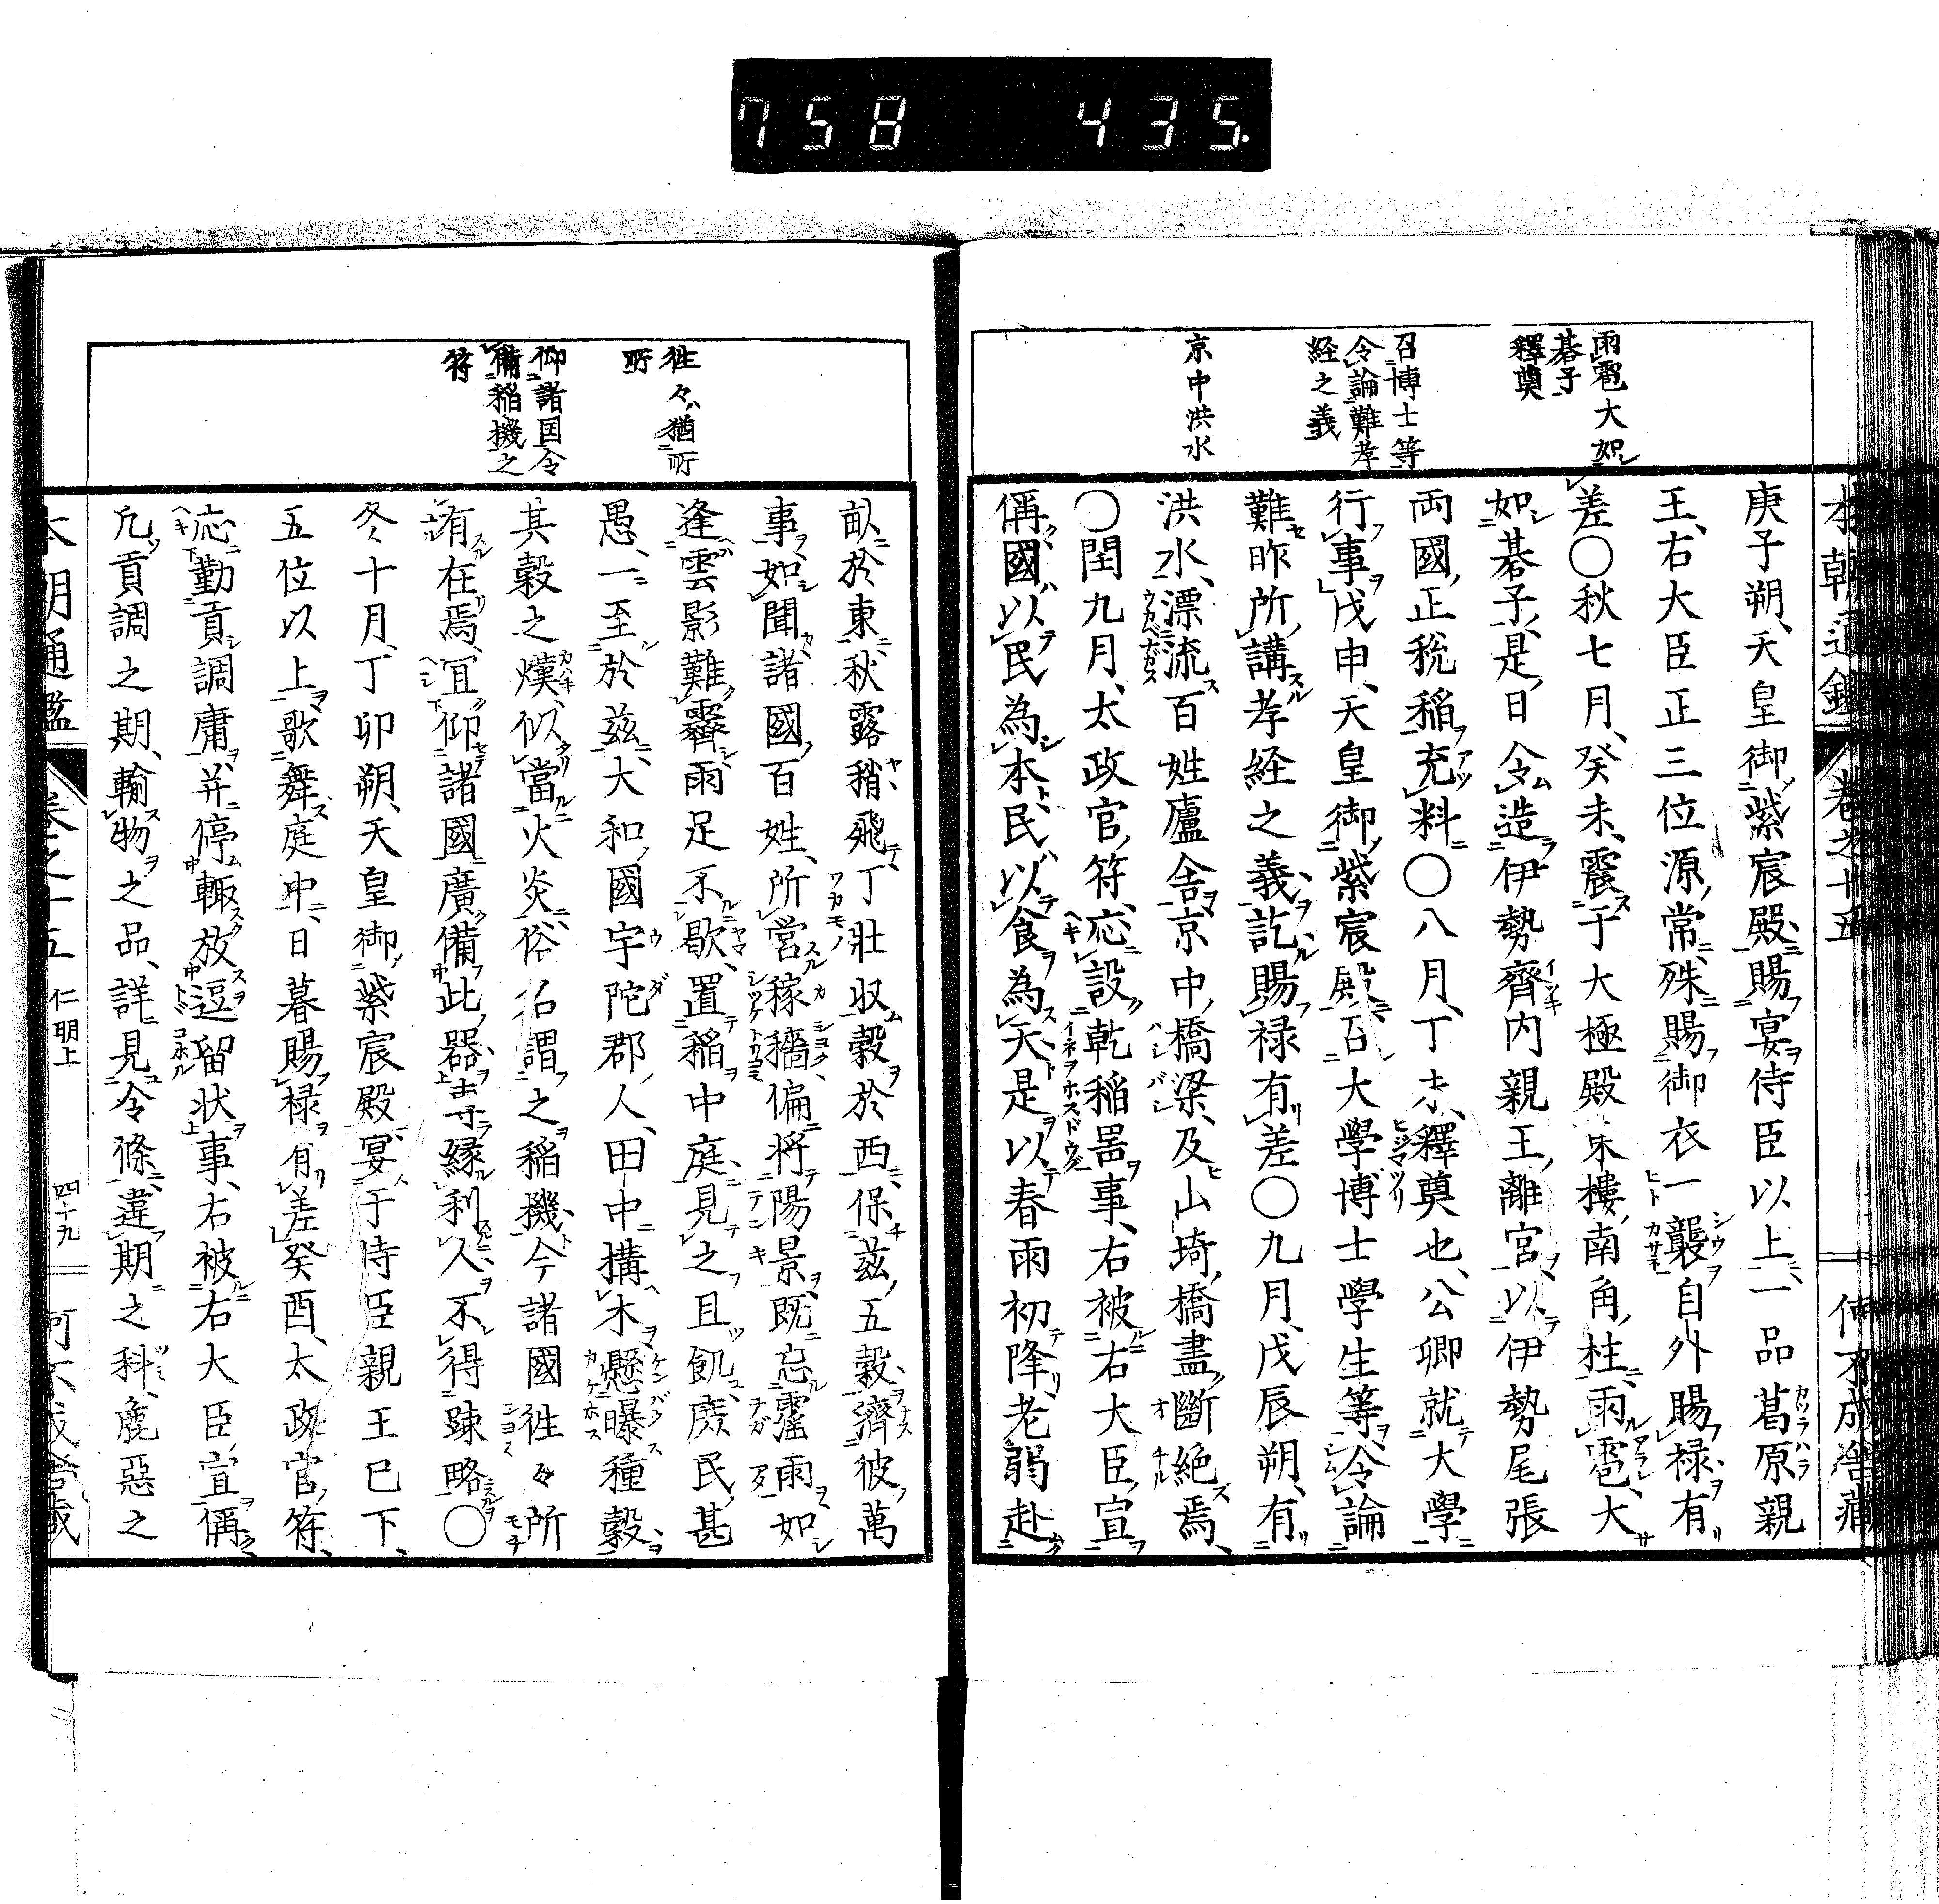 758 435.
本朝通鑑 卷之十五 何不成舎藏
雨雹大如
碁子
釋奠
召博士等
令論難孝
経之義
京中洪水
庚子朔、天皇御紫宸殿、賜宴侍臣以上、一品葛原親
王、右大臣正三位源常、殊賜御衣一襲、自外賜禄有
差〇秋七月、癸未、震于大極殿未樓南角柱、雨雹、大
如碁子、是日令造伊勢齊内親王離宮、以伊勢尾張
両國正税稲充料〇八月、丁未、釋奠也、公卿就大學
行事、戊申、天皇御紫宸殿、召大學博士學生等、令論
難昨所講孝経之義、訖賜禄有差〇九月、戊辰朔、有
洪水、漂流百姓廬舎、京中橋梁、及山埼橋盡斷絶焉、
〇閏九月、太政官符、応設乾稲噐事、右被右大臣宣
偁、國以民為本、民以食為天、是以春雨初降、老弱赴
畝於東、秋露稍飛、丁壮収穀於西、保茲五穀、濟彼萬
事、如聞諸國百姓、所営稼穡、偏将陽景、既忘霪雨、如
逢雲影難霽、雨足不歇、置稲中庭、見之且飢、庶民甚
愚、一至於茲、大和國宇陀郡人、田中搆木、懸曝種穀、
其穀之熯、似當火炎、俗名謂之稲機、今諸國徃々所
有在焉、宜仰諸國廣備此器、専縁利人、不得踈略〇
冬十月、丁卯朔、天皇御紫宸殿、宴于侍臣親王已下、
五位以上、歌舞庭中、日暮賜禄有差、癸酉、太政官符、
応勤貢調庸、并停輙放逗留状事、右被右大臣宣偁、
凡貢調之期、輸物之品、詳見令條、違期之科、麁惡之
徃々猶所
所
仰諸国令
備稲機之
符
本朝通鑑 卷之十五 仁明上 四十九 何不成舎藏